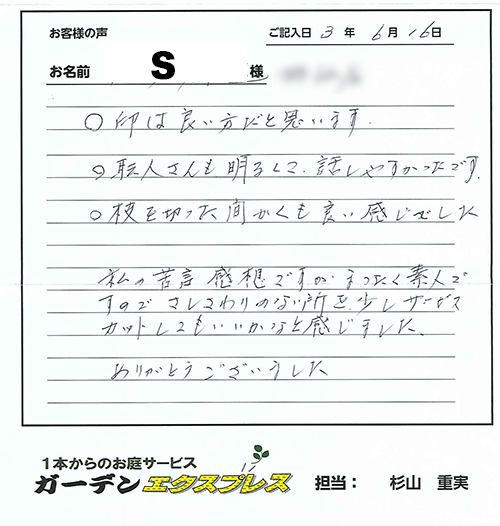 お客様の声
ご記入日 3年 6月16日
お名前 S 様
○印は良い方だと思います.
○職人さんも明るくて、話しやすかったです.
○枝を切った間かくも良い感じでした
私の苦言感想ですが、まったく素人で
すので さしさわりのない所を、少しサービス
カットしてもいいかなと感じました、
ありがとうございました
1本からのお庭サービス
ガーデンエクスプレス 担当: 杉山 重実